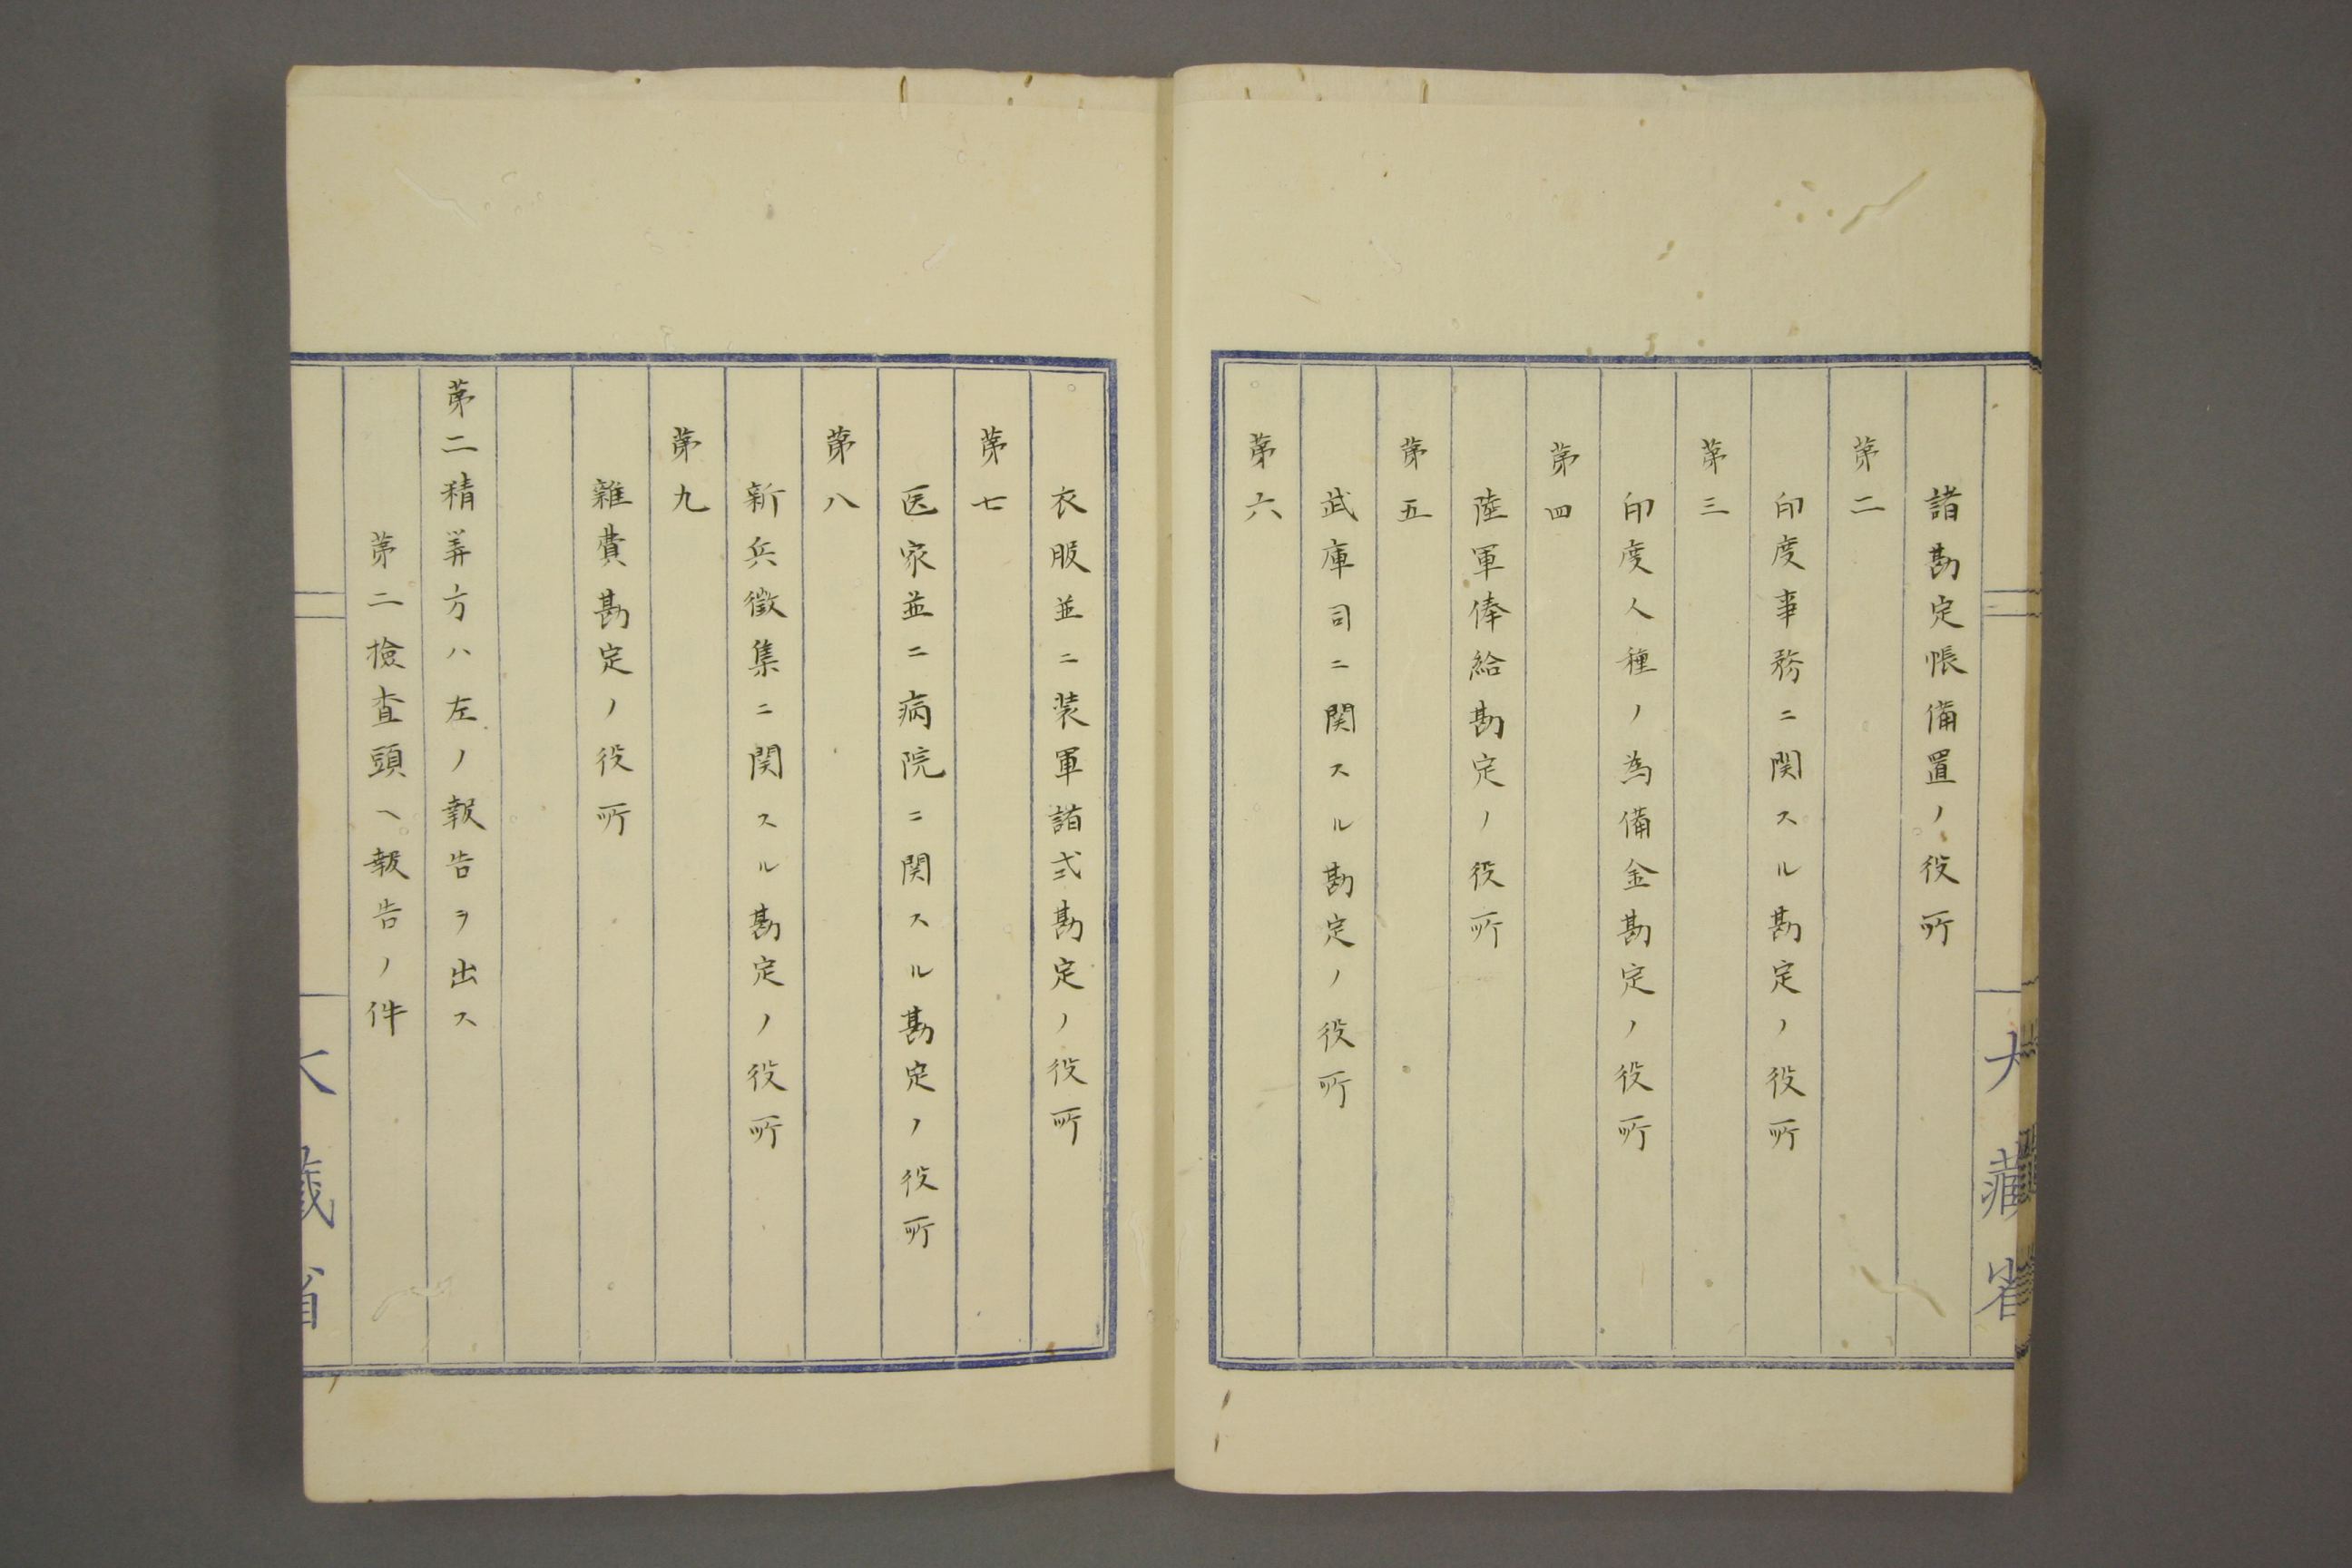 諸勘定帳備置ノ役所
第二
印度事務ニ関スル勘定ノ役所
第三
印度人種ノ為備金勘定ノ役所
第四
陸軍俸給勘定ノ役所
第五
武庫司ニ関スル勘定ノ役所
第六
衣服並ニ装軍諸式勘定ノ役所
第七
医家並ニ病院ニ関スル勘定ノ役所
第八
新兵徴集ニ関スル勘定ノ役所
第九
雑費勘定ノ役所
第二精算方ハ左ノ報告ヲ出ス
第二検査頭ヘ報告ノ件
大藏省
大藏省